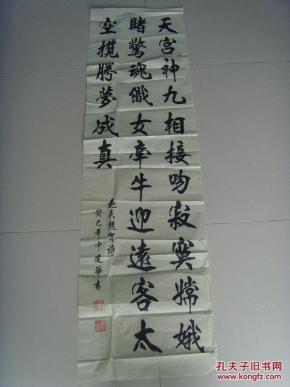 天宫神九相接吻寂寞嫦娥
睹惊魂织女牵牛迎远客太
空揽腾梦成真
癸巳年仲建华书
孔夫子旧书网